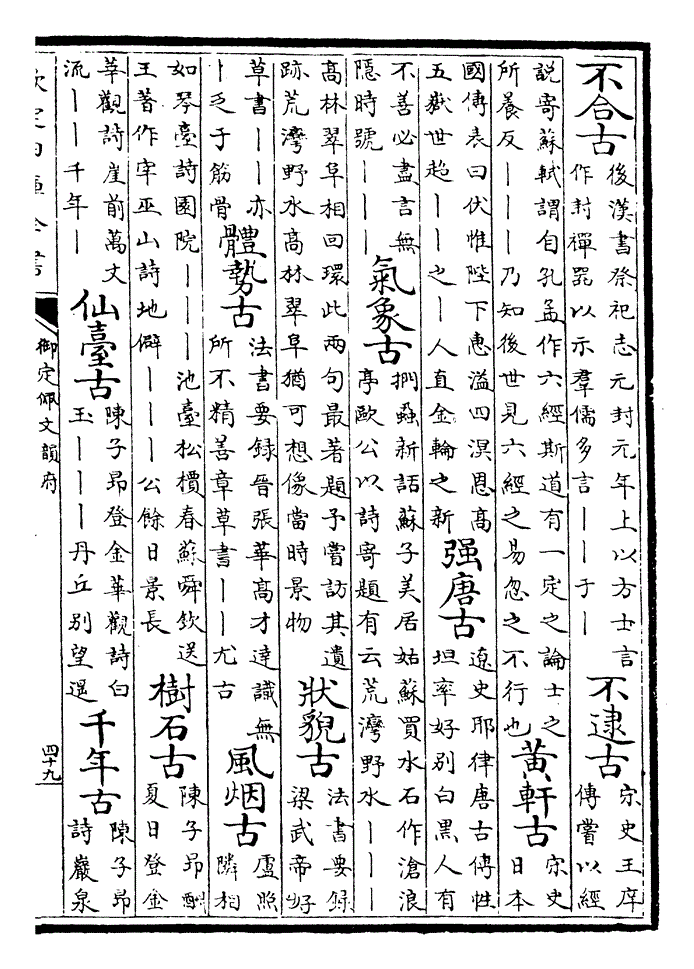 不合古
後漢書祭祀志元封元年上以方士言
作封禪器以示羣儒多言丨丨于丨
不逮古
宋史王庠
傳嘗以經
說寄蘇軾謂自孔孟作六經斯道有一定之論士之
所養反丨丨丨乃知後世見六經之易忽之不行也
黃軒古
宋史
日本
國傳表曰伏惟陛下惠溢四溟恩高
五嶽世超丨丨之丨人直金輪之新
强唐古
遼史耶律唐古傳性
坦率好別白黒人有
不善必盡言無
隠時號丨丨丨
氣象古
捫蝨新話蘇子美居姑蘇買水石作滄浪
亭歐公以詩寄題有云荒灣野水丨丨丨
高林翠阜相回環此兩句最著題予嘗訪其遺
跡荒灣野水高林翠阜猶可想像當時景物
狀貌古
法書要録
梁武帝好
草書丨丨亦
丨乏于筋骨
體勢古
法書要録晉張華高才達識無
所不精善章草書丨丨尤古
風烟古
盧照
隣相
如琴臺詩園院丨丨丨池臺松檟春蘇舜欽送
王著作宰巫山詩地僻丨丨丨公餘日景長
樹石古
陳子昂酬
夏日登金
華觀詩崖前萬丈
流丨丨千年丨
仙臺古
陳子昂登金華觀詩白
玉丨丨丨丹丘別望遥
千年古
陳子昂
詩巖泉
欽定四庫全書
御定佩文韻府
四十九